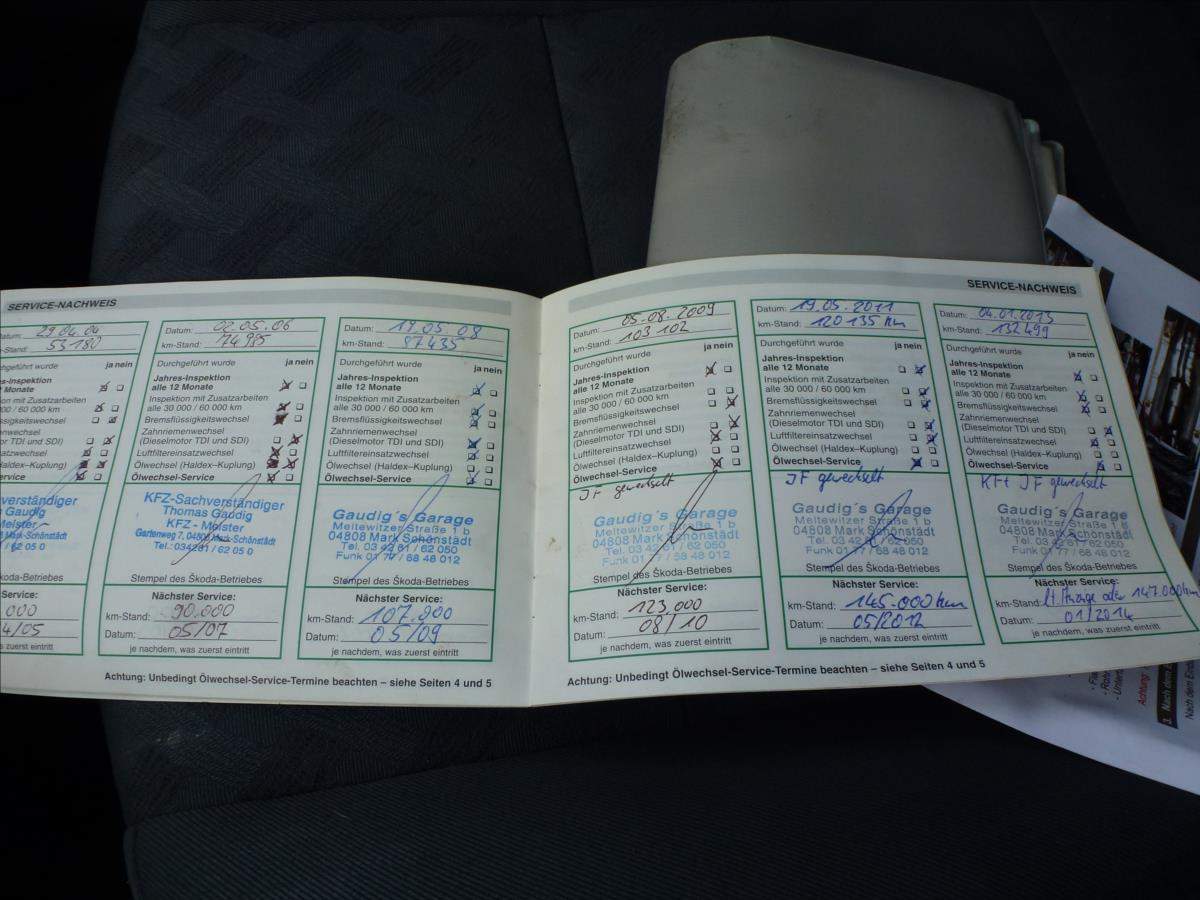 SERVICE-NACHWEIS
Datum: 29.04.04
km-Stand: 53180
ja nein
Monate
00 / 60 000 km
sigkeitswechsel
chsel
or TDI und SDI)
satzwechsel
Haldex–Kuplung)
Service
verständiger
Gaudig
Meister
Mark-Schönstädt
/ 62 05 0
Škoda-Betriebes
Service:
000
4/05
Datum: 02.05.06
km-Stand: 74985
Durchgeführt wurde ja nein
Jahres-Inspektion
alle 12 Monate
Inspektion mit Zusatzarbeiten
alle 30 000 / 60 000 km
Bremsflüssigkeitswechsel
Zahnriemenwechsel
(Dieselmotor TDI und SDI)
Luftfiltereinsatzwechsel
Ölwechsel (Haldex–Kuplung)
Ölwechsel-Service
KFZ-Sachverständiger
Thomas Gaudig
KFZ - Meister
Gartenweg 7, 04808 Mark-Schönstädt
Tel.: 034261 / 62 05 0
Stempel des Škoda-Betriebes
Nächster Service:
km-Stand: 90.000
Datum: 05/07
je nachdem, was zuerst eintritt
Datum: 19.05.08
km-Stand: 87435
Durchgeführt wurde ja nein
Jahres-Inspektion
alle 12 Monate
Inspektion mit Zusatzarbeiten
alle 30 000 / 60 000 km
Bremsflüssigkeitswechsel
Zahnriemenwechsel
(Dieselmotor TDI und SDI)
Luftfiltereinsatzwechsel
Ölwechsel (Haldex–Kuplung)
Ölwechsel-Service
Gaudig´s Garage
Meltewitzer Straße 1 b
04808 Mark Schönstädt
Tel. 03 42 61 / 62 050
Funk 01 77 / 68 48 012
Stempel des Škoda-Betriebes
Nächster Service:
km-Stand: 107.000
Datum: 05/09
je nachdem, was zuerst eintritt
Achtung: Unbedingt Ölwechsel-Service-Termine beachten – siehe Seiten 4 und 5
SERVICE-NACHWEIS
Datum: 05.08.2009
km-Stand: 103102
Durchgeführt wurde ja nein
Jahres-Inspektion
alle 12 Monate
Inspektion mit Zusatzarbeiten
alle 30 000 / 60 000 km
Bremsflüssigkeitswechsel
Zahnriemenwechsel
(Dieselmotor TDI und SDI)
Luftfiltereinsatzwechsel
Ölwechsel (Haldex–Kuplung)
Ölwechsel-Service
IF gewechselt
Gaudig´s Garage
Meltewitzer Straße 1 b
04808 Mark Schönstädt
Tel. 03 42 61 / 62 050
Funk 01 77 / 68 48 012
Stempel des Škoda-Betriebes
Nächster Service:
km-Stand: 123.000
Datum: 08/10
je nachdem, was zuerst eintritt
Datum: 19.05.2011
km-Stand: 120135 km
Durchgeführt wurde ja nein
Jahres-Inspektion
alle 12 Monate
Inspektion mit Zusatzarbeiten
alle 30 000 / 60 000 km
Bremsflüssigkeitswechsel
Zahnriemenwechsel
(Dieselmotor TDI und SDI)
Luftfiltereinsatzwechsel
Ölwechsel (Haldex–Kuplung)
Ölwechsel-Service
IF gewechselt
Gaudig´s Garage
Meltewitzer Straße 1 b
04808 Mark Schönstädt
Tel. 03 42 61 / 62 050
Funk 01 77 / 68 48 012
Stempel des Škoda-Betriebes
Nächster Service:
km-Stand: 145.000 km
Datum: 05/2012
je nachdem, was zuerst eintritt
Datum: 04.01.2013
km-Stand: 132499
Durchgeführt wurde ja nein
Jahres-Inspektion
alle 12 Monate
Inspektion mit Zusatzarbeiten
alle 30 000 / 60 000 km
Bremsflüssigkeitswechsel
Zahnriemenwechsel
(Dieselmotor TDI und SDI)
Luftfiltereinsatzwechsel
Ölwechsel (Haldex–Kuplung)
Ölwechsel-Service
Kft IF gewechselt
Gaudig´s Garage
Meltewitzer Straße 1 b
04808 Mark Schönstädt
Tel. 03 42 61 / 62 050
Funk 01 77 / 68 48 012
Stempel des Škoda-Betriebes
Nächster Service:
km-Stand: lt Anzeige oder 147.000 km
Datum: 01/2014
je nachdem, was zuerst eintritt
Achtung: Unbedingt Ölwechsel-Service-Termine beachten – siehe Seiten 4 und 5
Achtung
3. Nach dem